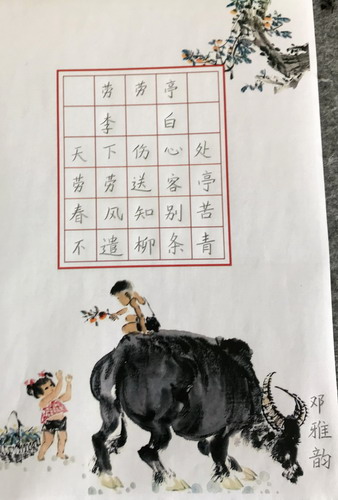 劳劳亭
李白
天下伤心处
劳劳送客亭
春风知别苦
不遣柳条青
邓雅韵